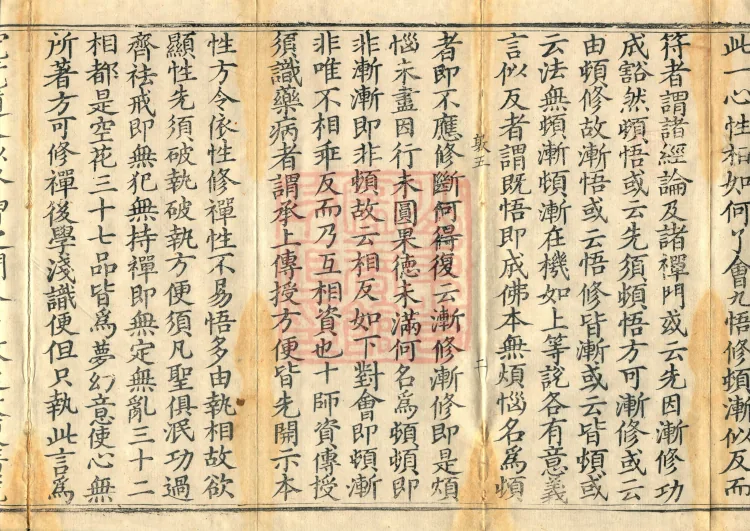 此一心性相如何了會九悟修頓漸似反而
符者謂諸經論及諸禪門或云先因漸修功
成豁然頓悟或云先須頓悟方可漸修或云
由頓修故漸悟或云悟修皆漸或云皆頓或
云法無頓漸頓漸在機如上等說各有意義
言似反者謂既悟即成佛本無煩惱名為頓
敦五
二
者即不應修斷何得復云漸修漸修即是煩
惱未盡因行未圓果德未滿何名為頓頓即
非漸漸即非頓故云相反如下對會即頓漸
非唯不相乖反而乃互相資也十師資傳授
須識藥病者謂承上傳授方便皆先開示本
性方令依性修禪性不易悟多由執相故欲
顯性先須破執破執方便須凡聖俱泯功過
齊祛戒即無犯無持禪即無定無亂三十二
相都是空花三十七品皆為夢幻意使心無
所著方可修禪後學淺識便但只執此言為